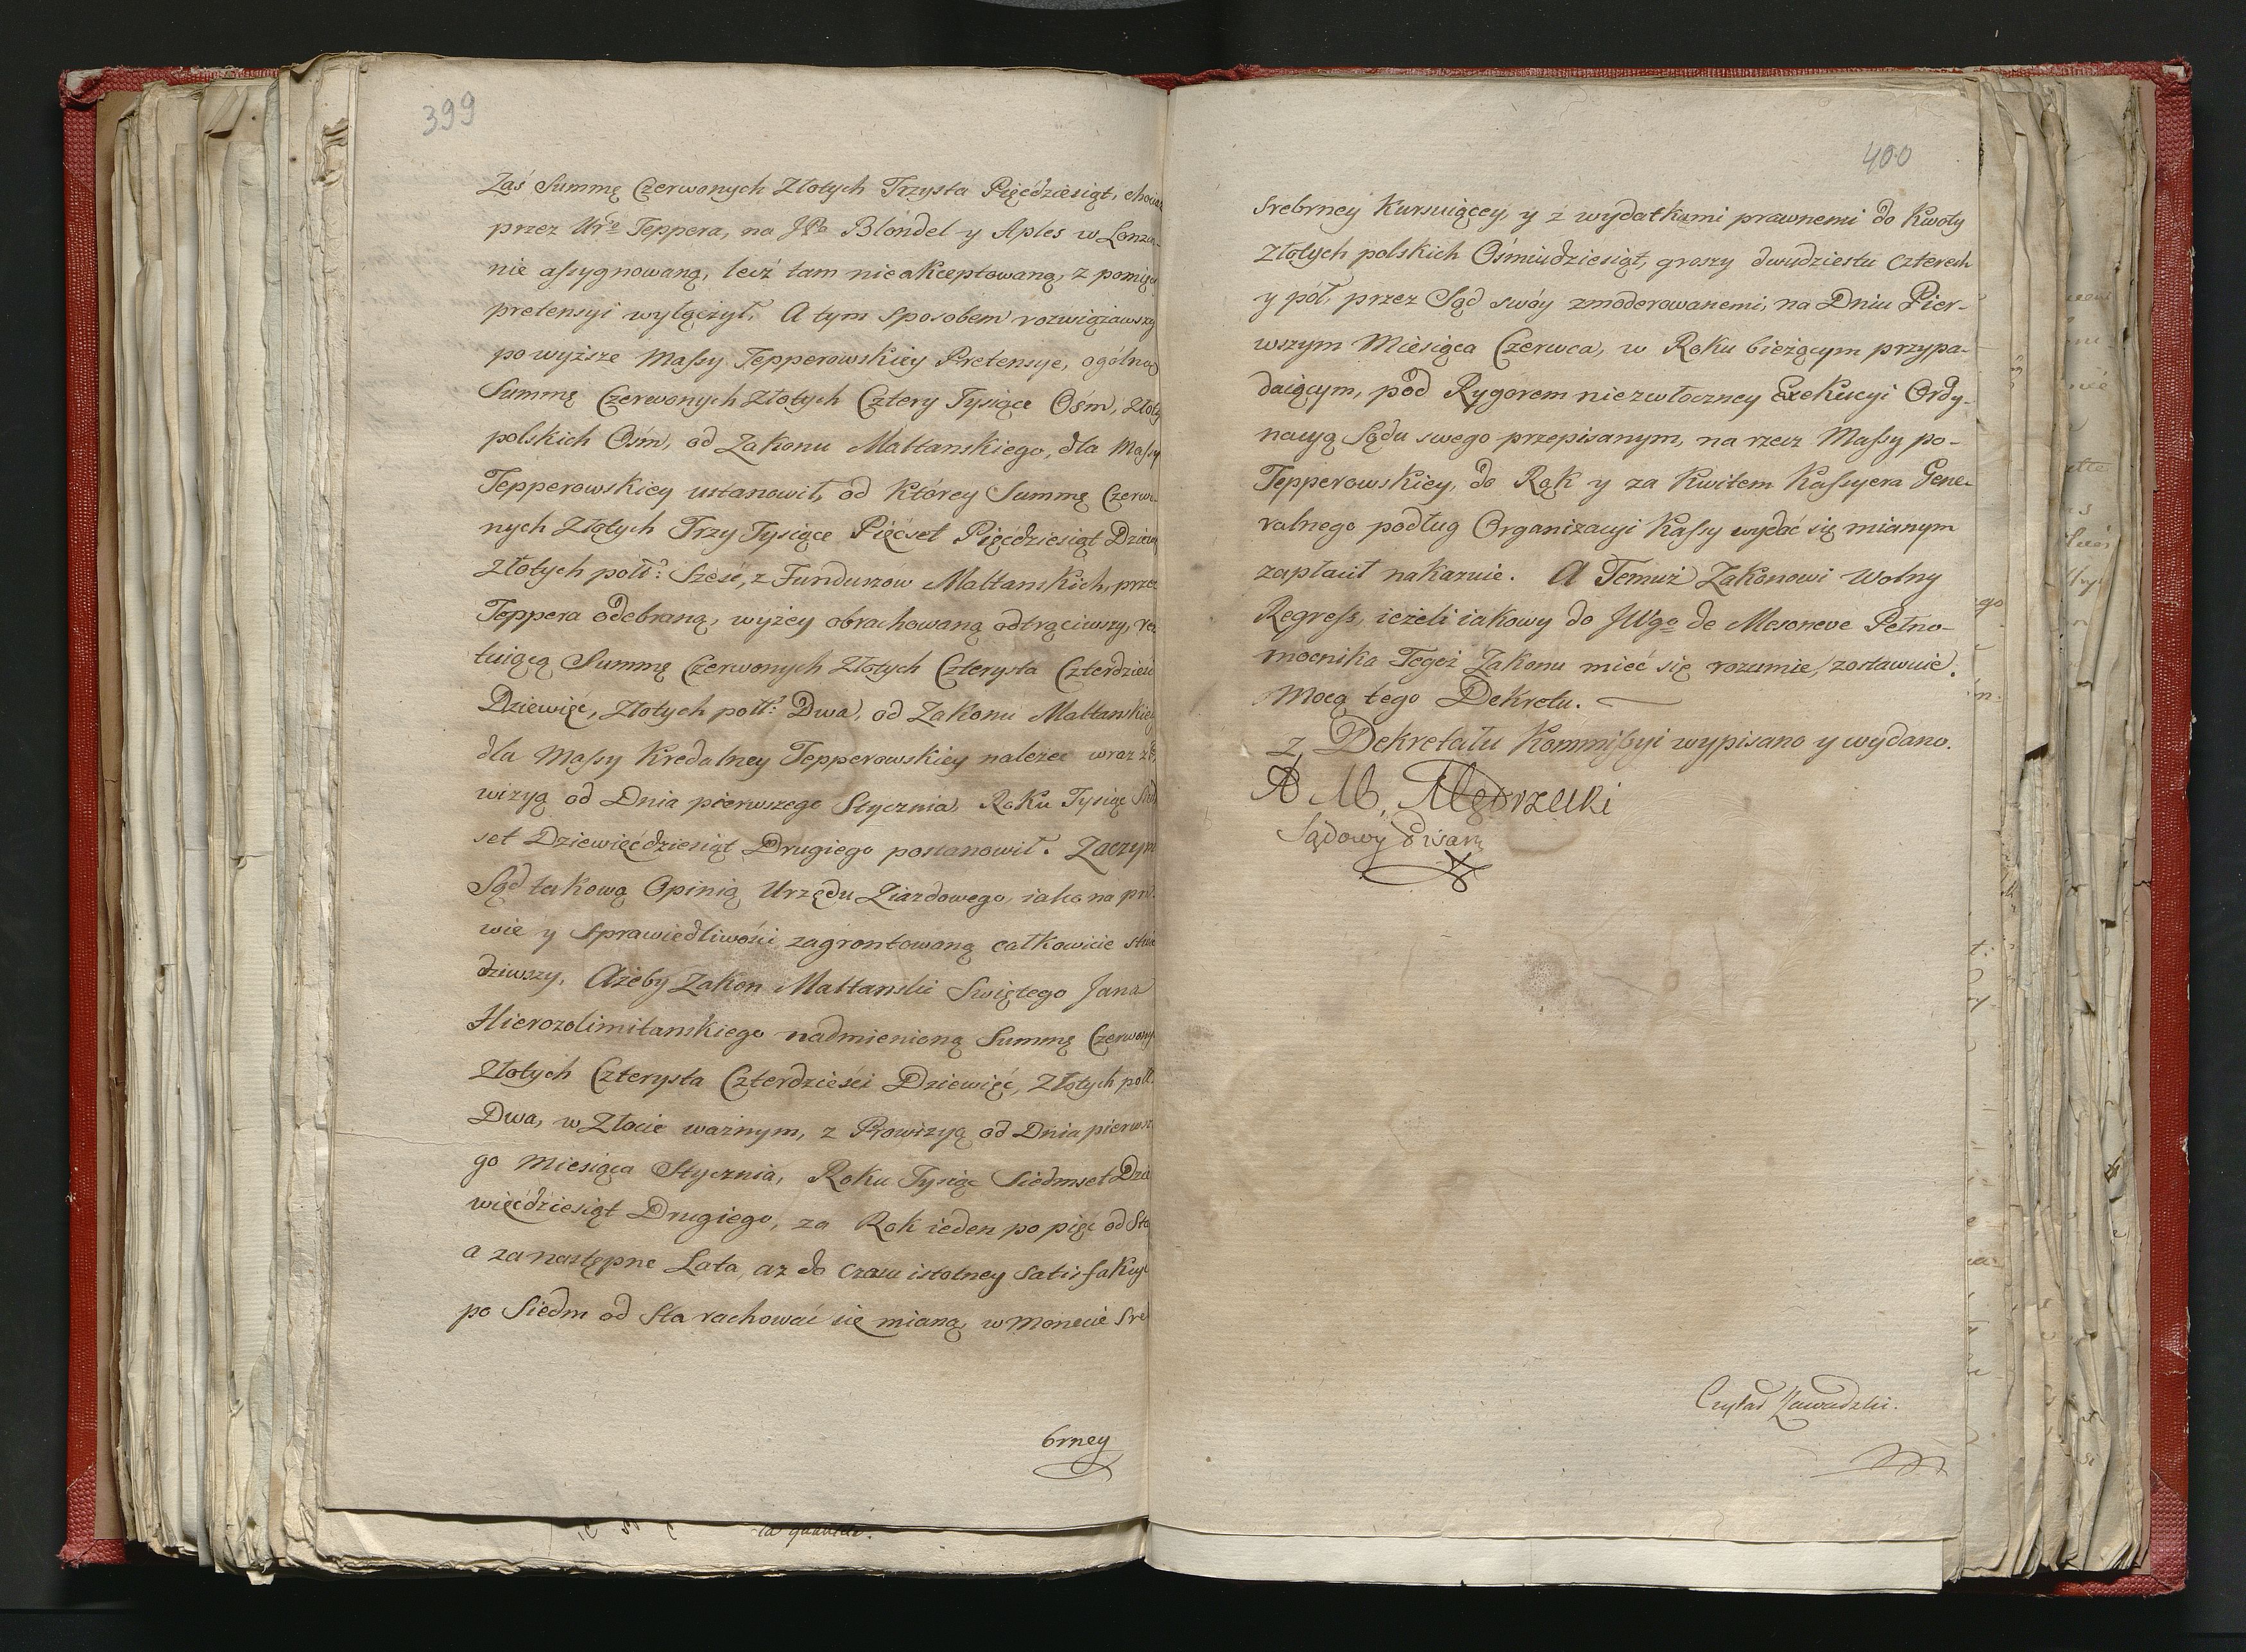 399
Zaś Summę Czerwonych Złotych Trzysta Pięćdziesiąt, chociaż
przez Urº Teppera, na JPa Blondel y Aples w Lonza-
nie assygnowaną, lecz tam nieakceptowaną, z pomię
pretensyi wyłączył. A tym sposobem rozwiązawszy
powyższe Massy Tepperowskiey Pretensye, ogólną
Summę Czerwonych Złotych Cztery Tysiące Ośm, złoty
polskich Ośm, od Zakonu Maltanskiego, dla Massy
Tepperowskiey ustanowił, od którey Summę Czerwo-
nych Złotych Trzy Tysiące Pięćset Pięćdziesiąt Dziewię
Złotych poll: Szesć, z Funduszow Maltanskich, przez
Teppera odebraną, wyżey obrachowaną odtrąciwszy, re
tuiącą Summę Czerwonych Złotych Czterysta Czterdzieści
Dziewięć, Złotych poll: Dwa, od Zakonu Maltanskiego
dla Massy Kredalney Tepperowskiey należeć wraz z Pro
wizyą od Dnia pierwszego Stycznia, Roku Tysiąc Siedm
set Dziewięćdziesiąt Drugiego postanowił. Zaczym
Sąd takową Opinią Urzędu Ziazdowego, iako na pra
wie y Sprawiedliwości zagrontowaną całkowicie stwie
dziwszy, Ażeby Zakon Maltanski Swiętego Jana
Hierozolimitanskiego nadmienioną Summę Czerwony
Złotych Czterysta Czterdzieści Dziewięć, Złotych poll.
Dwa, w Złocie ważnym, z Prowizyą od Dnia pierwsze
go Miesiąca Stycznia, Roku Tysiąc Siedmset Dzie
więćdziesiąt Drugiego, za Rok ieden po pięć od Sta
a za następne Lata, aż do czasu istotney Satisfakcyi
po Siedm od Sta rachować się mianą, w Monecie Sre
brney
400
srebrney Kursuiącey, y z wydatkami prawnemi do Kwoty
Złotych polskich Ośmiudziesiąt, groszy dwudziestu czterech
y pół, przez Sąd swóy zmoderowanemi, na Dniu Pier-
wszym Miesiąca Czerwca, w Roku bieżącym przypa-
daiącym, pod Rygorem niezwłoczney Exekucyi Ordy-
nacyą Sądu swego przepisanym, na rzecz Massy po-
Tepperowskiey, do Rąk y za Kwitem Kassyera Gene-
ralnego podług Organizacyi Kassy wydać się mianym
zapłacił nakazuie. A Temuż Zakonowi Wolny
Regress, ieżeli iakowy do JWgo de Mesoneve Pełno-
mocnika Tegoż Zakonu mieć się rozumie, zostawuie.
Mocą tego Dekretu.
z Dekretału Kommissyi wypisano y wydano.
Sądowy Pisarz
Czytał Zawadzki.